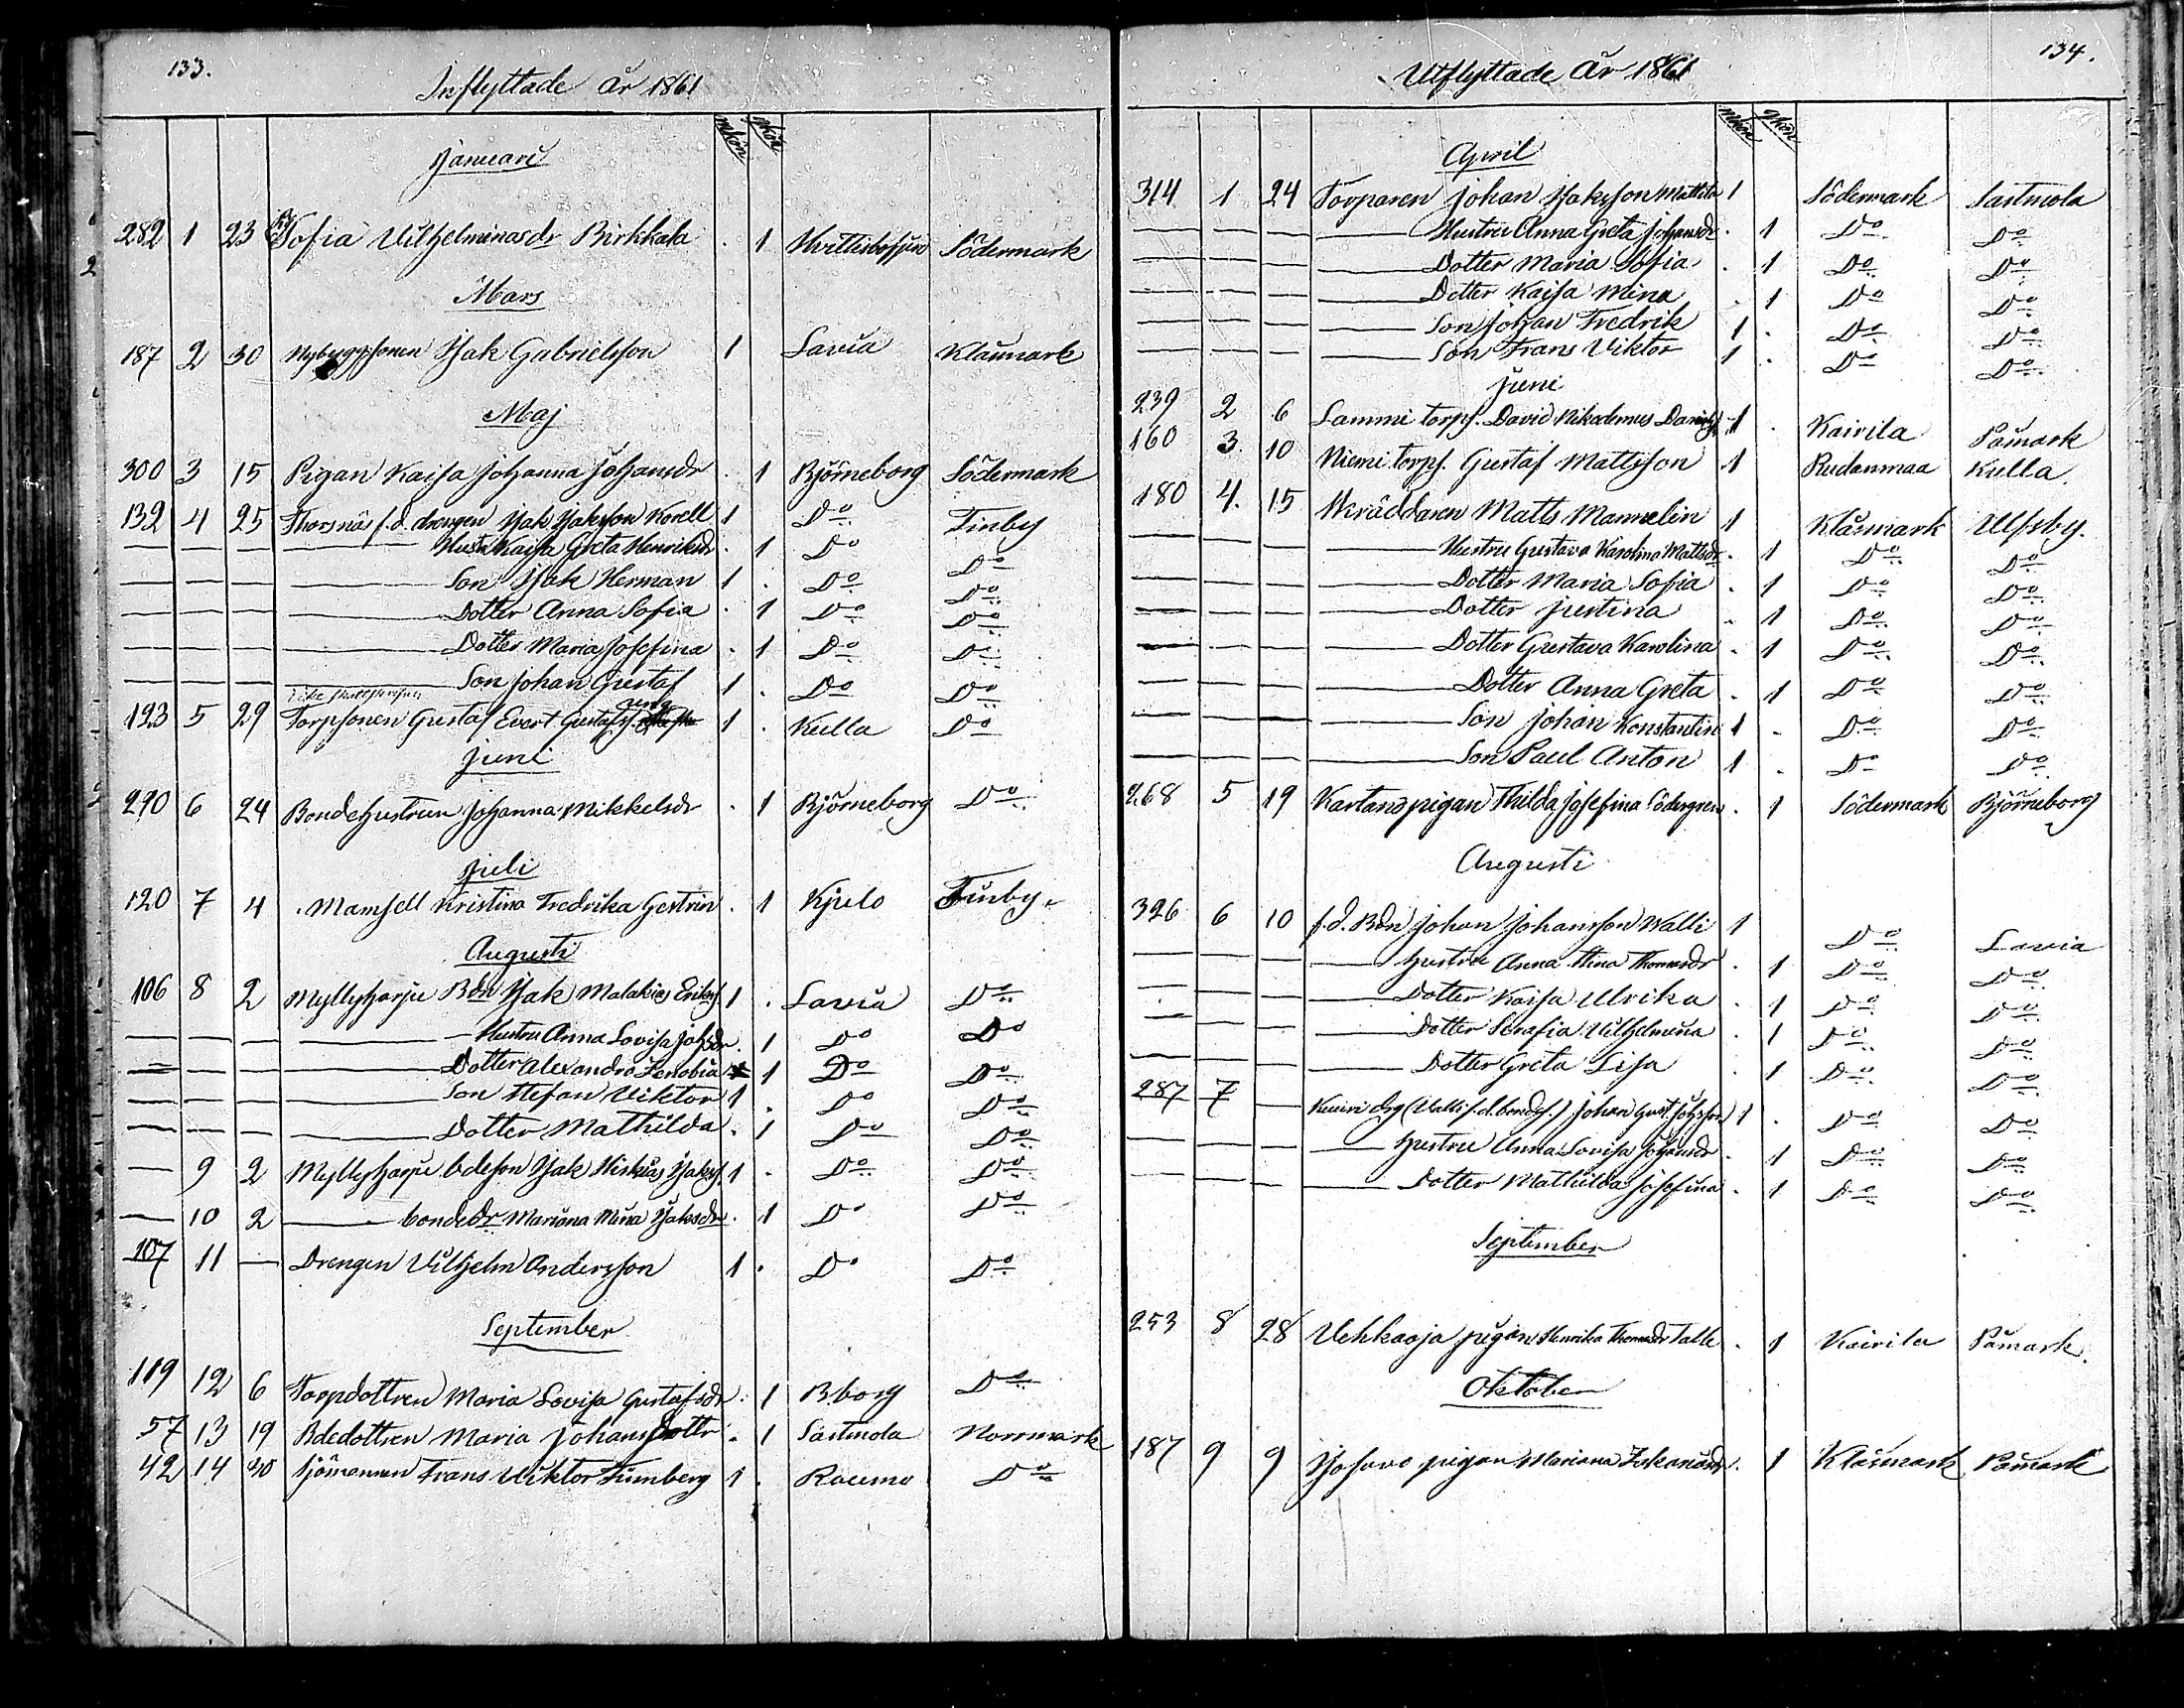 133.
Inflyttade år 1861
mkön qkön
Januari
282 1 23 Sofia Vilhelminasdr Birkkala . 1 Södermark
Mars
187 2 30 Isak Gabrielsson 1 Lavia Klåsmark
Maj
300 3 15 Pigan Kaisa Johanna Johansdr . 1 Björneborg Södermark
132 4 25 Thorsnäs f.d. drengen Isak Isaksson Korell 1 Do Finby
— — — — Hustr Kaisa Greta Henriksdr . 1 Do Do
— — — — Son Isak Herman 1 . Do Do
— — — — Dotter Anna Sofia . 1 Do Do
— — — — Dotter Maria Josefina . 1 Do Do
— — — — Son Johan Gustaf 1 . Do Do
123 5 29 Torpsonen Gustaf Evert Gustafss. 1 . Kulla Do
Juni
290 6 24 Bondehustrun Johanna Mikkelsdr . 1 Björneborg Do
Juli
120 7 4 Mamsell Kristina Fredrika Gestrin . 1 Kjulo Finby
Augusti
106 8 2 Myllyharju Bdn Isak Malakias Erikss. 1 . Lavia Do
— — — — Hustru Anna Lovisa Johsdr . 1 Do Do
— — — — Dotter Alexandra Zenobia 1 Do Do
— — — — Son Stefan Viktor 1 . Do Do
— — — — Dotter Mathilda . 1 Do Do
— 9 2 Myllyharju bdeson Isak Hiskias Isakss. 1 . Do Do
— 10 2 — bondedr Mariana Mina Isaksdr . 1 Do Do
107 11 — Drengen Vilhelm Andersson 1 . Do Do
September
119 12 6 Torpdottren Maria Lovisa Gustafsdr . 1 B.borg Do
57 13 19 Bdedottren Maria Johansdottr . 1 Sastmola Norrmark
42 14 30 Sjömannen Frans Viktor 1 . Raumo Do
134.
Utflyttade år 1861
mkön qkön
April
314 1 24 Torparen Johan Isaksson Mattila 1 Södermark Sastmola
— — — — Hustru Anna Greta Johansdr . 1 Do Do
— — — — Dotter Maria Sofia . 1 Do Do
— — — — Dotter Kaisa Mina . 1 Do Do
— — — — Son Johan Fredrik 1 . Do Do
— — — — Son Frans Viktor 1 . Do Do
Juni
239 2 6 Lammi torps. David Nikodemus Davidss. 1 . Kairila Påmark
160 3. 10 Niemi torps. Gustaf Mattsson 1 Rudanmaa Kulla.
180 4. 15 Skräddaren Matts Mannelin 1 Klåsmark Ulfsby.
— — — — Hustru Gustava Karolina Mattsdr . 1 Do Do
— — — — Dotter Maria Sofia . 1 Do Do
— — — — Dotter Justina . 1 Do Do
— — — — Dotter Gustava Karolina . 1 Do Do
— — — — Dotter Anna Greta . 1 Do Do
— — — — Son Johan Konstantin 1 . Do Do
— — — — Son Paul Anton 1 . Do Do
268 5 19 Kartano pigan Thilda Josefina Södergren . 1 Södermark Björneborg
Augusti
326 6 10 f.d. Bdn Johan Johansson Walli 1 Do Lavia
— — — — hustru Anna Stina Thomasdr . 1 Do Do
— — — — Dotter Kaisa Ulrika . 1 Do Do
— — — — Dotter Serafia Vilhelmina . 1 Do Do
— — — — Dotter Greta Lisa . 1 Do Do
287 7 — drg (Valli f.d. bondes.) Johan Gust. Johsson 1 . Do Do
— — — — hustru Anna Lovisa Johansdr . 1 Do Do
— — — — Dotter Mathilda Josefina . 1 Do Do
September
253 8 28 Vehkaoja pigan Henrika Thomasdr Talle . 1 Kairila Påmark.
Oktober
187 9 9 pigan Mariana . 1 Klåsmark Påmark